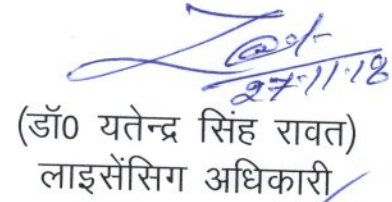 27-11-18
(डॉ0 यतेन्द्र सिंह रावत)
लाइसेंसिग अधिकारी